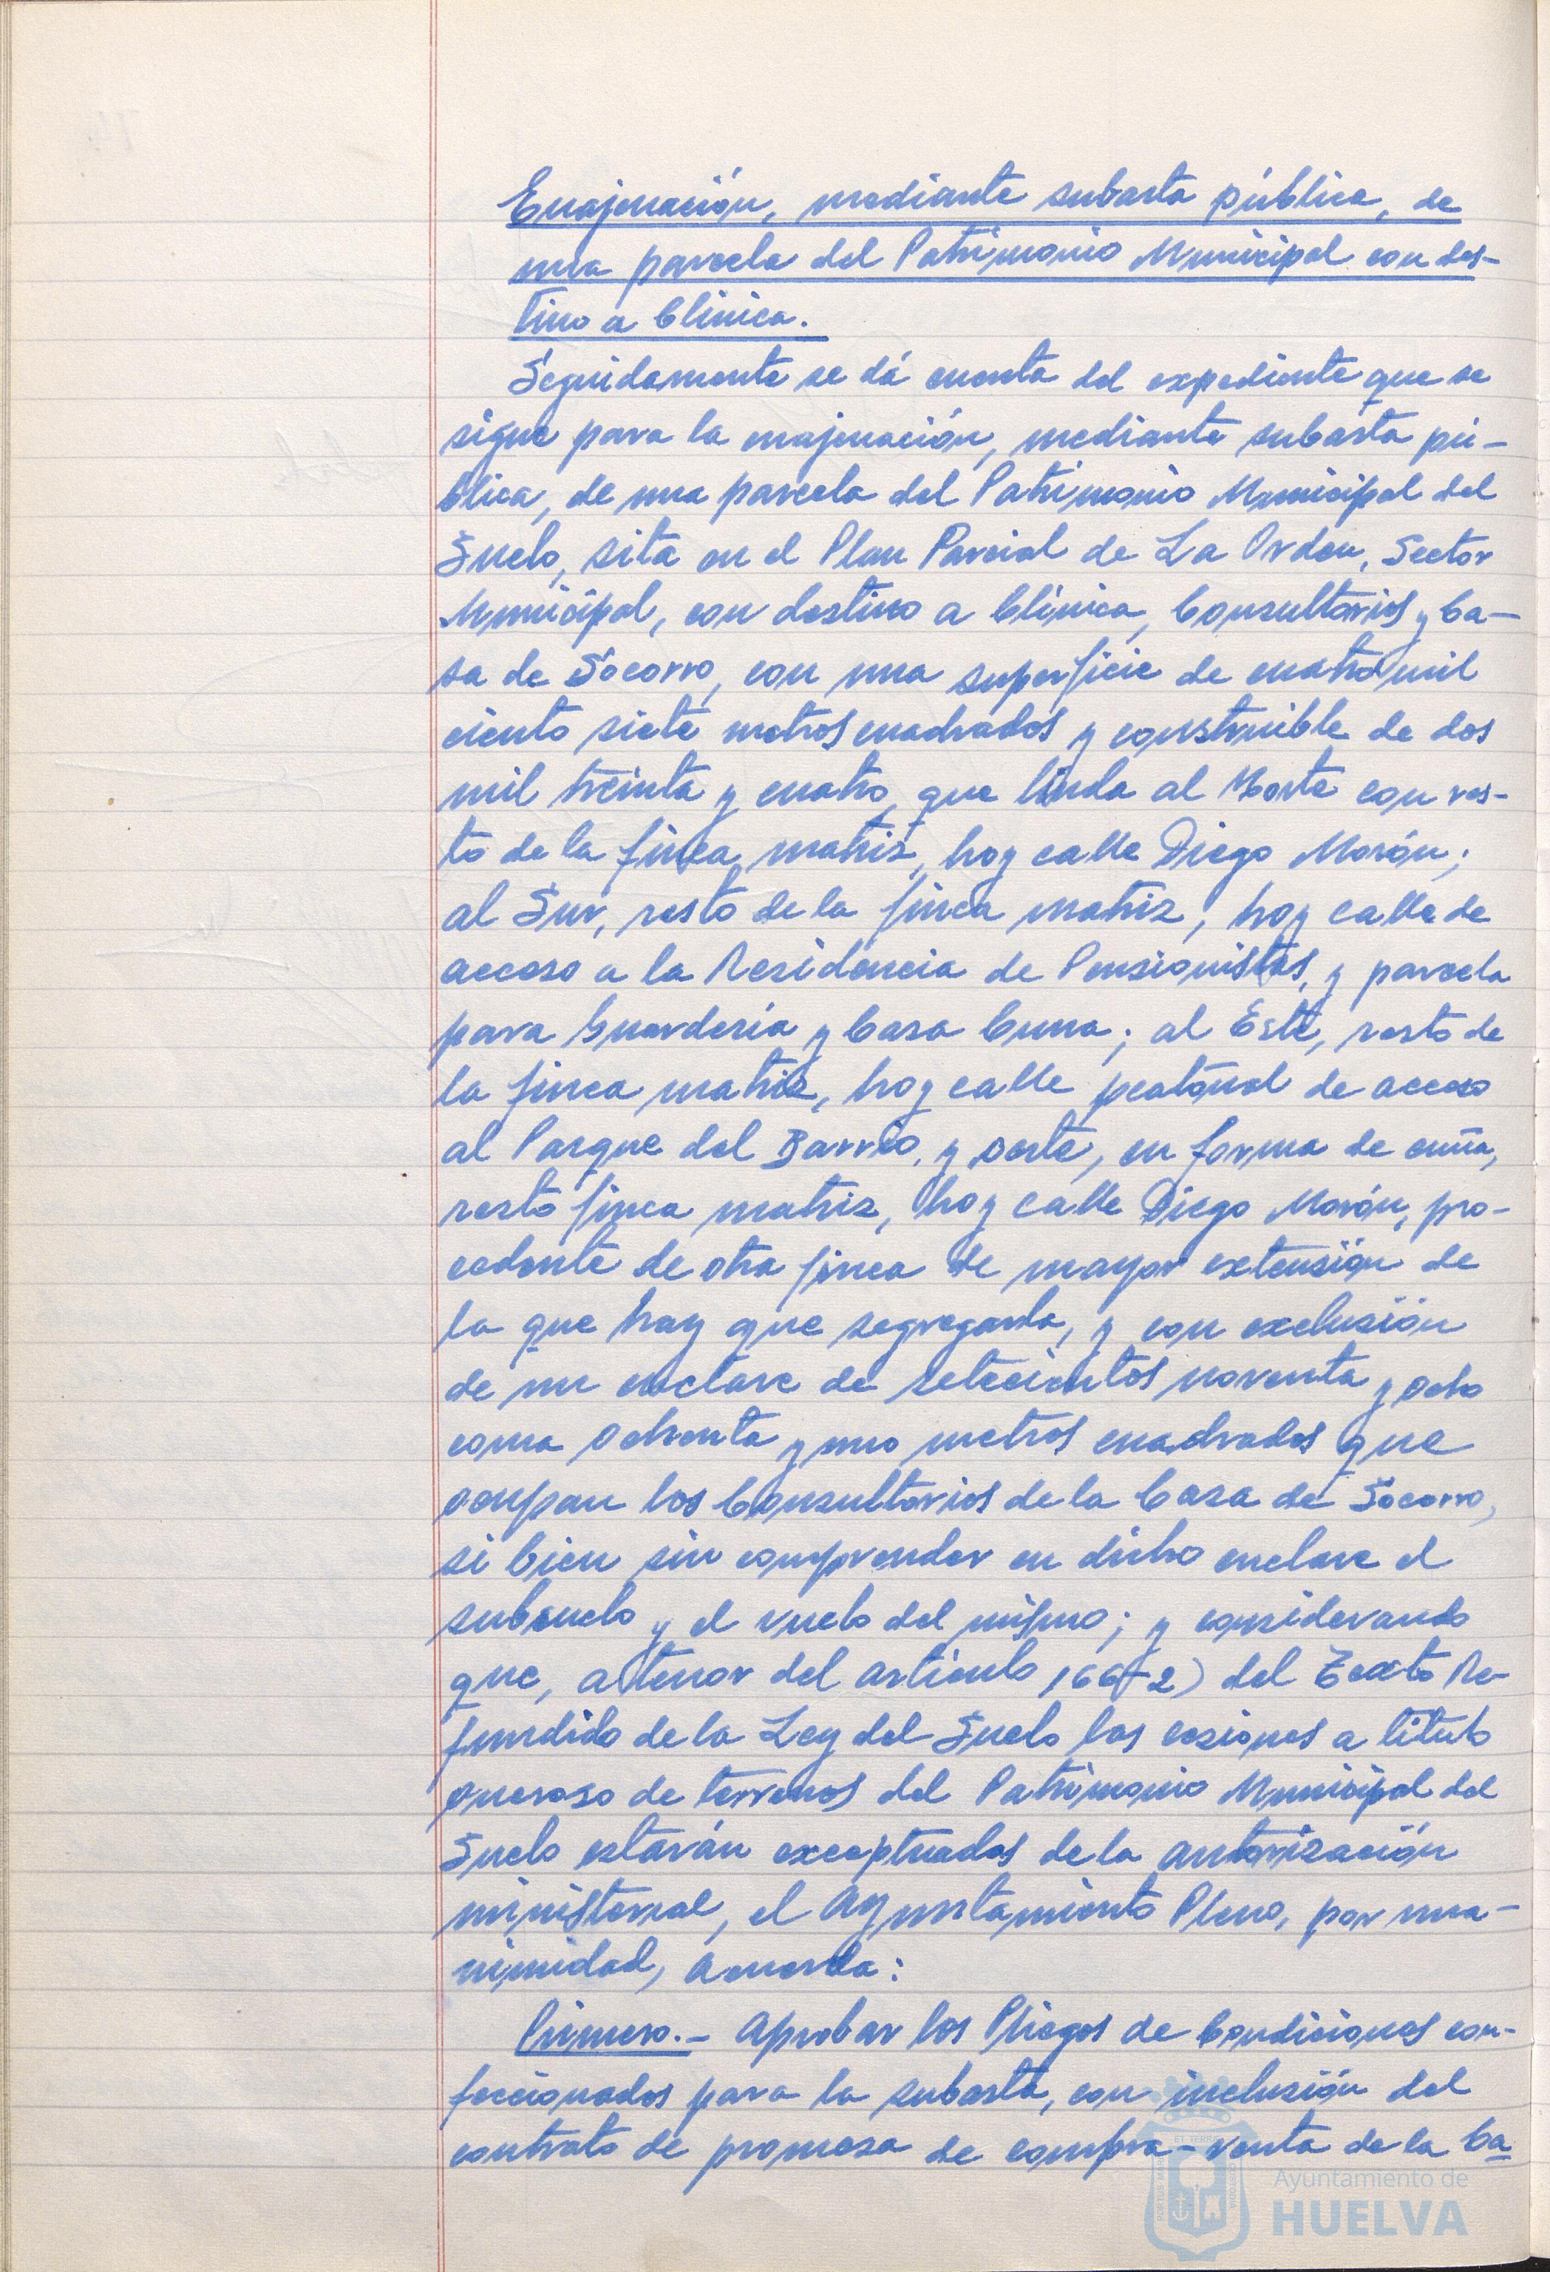 Enajenación, mediante subasta pública, de
una parcela del Patrimonio Municipal con des-
tino a Clínica.
Seguidamente se dá cuenta del expediente que se
sigue para la enajenación, mediante subasta pú-
blica, de una parcela del Patrimonio Municipal del
Suelo, sita en el Plan Parcial de La Orden, Sector
Municipal, con destino a Clínica, Consultorios y Ca-
sa de Socorro, con una superficie de cuatro mil
ciento siete metros cuadrados y construible de dos
mil treinta y cuatro, que linda al Norte con res-
to de la finca matriz, hoy calle Diego Morón;
al Sur, resto de la finca matriz, hoy calle de
acceso a la Residencia de Pensionistas, y parcela
para Guardería y Casa Cuna; al Este, resto de
la finca matriz, hoy calle peatonal de acceso
al Parque del Barrio, y Oeste, en forma de cuña,
resto finca matriz, hoy calle Diego Morón, pro-
cedente de otra finca de mayor extensión de
la que hay que segregarla, y con exclusión
de un enclave de setecientos noventa y ocho
coma ochenta y uno metros cuadrados que
ocupan los Consultorios de la Casa de Socorro,
si bien sin comprender en dicho enclave el
subsuelo y el vuelo del mismo; y considerando
que, a tenor del artículo 166-2) del Texto Re-
fundido de la Ley del Suelo las cesiones a título
oneroso de terrenos del Patrimonio Municipal del
Suelo estarán exceptuadas de la autorización
ministerial, el Ayuntamiento Pleno, por una-
nimidad, acuerda:
Primero.- Aprobar los Pliegos de Condiciones con-
feccionados para la subasta, con inclusión del
contrato de promesa de compra-venta de la Ca
Ayuntamiento de
HUELVA